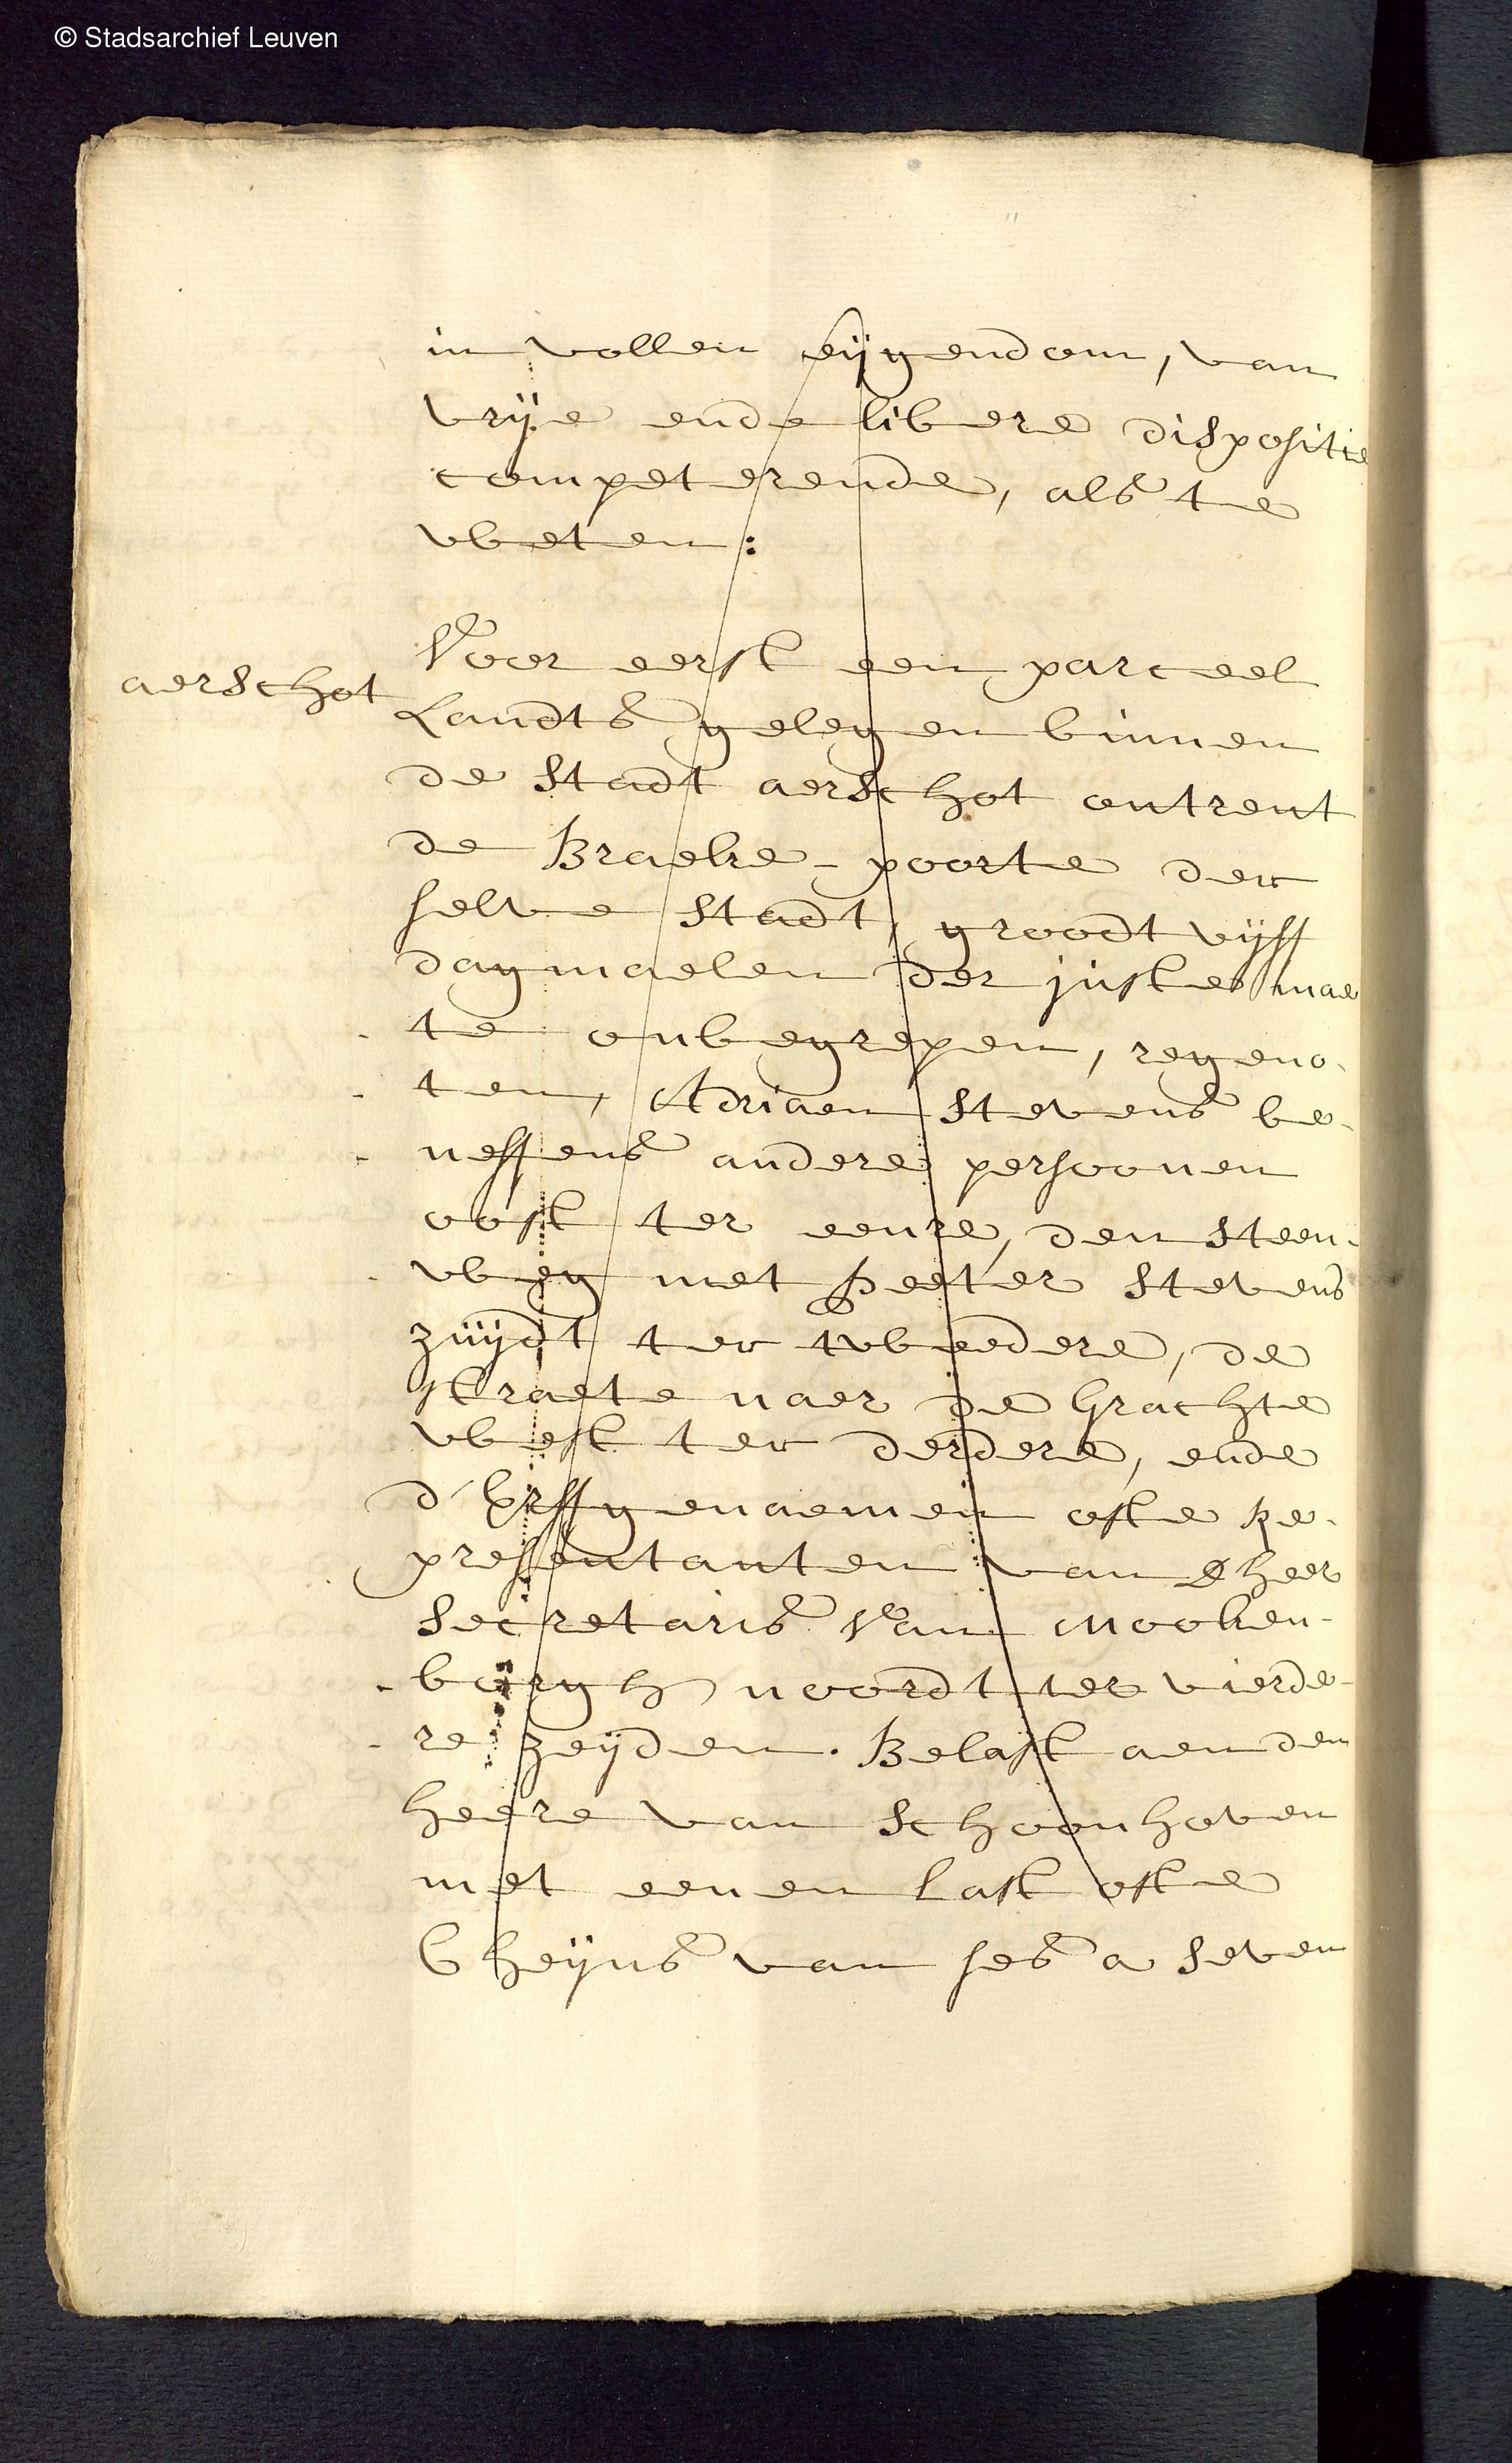 © Stadsarchief Leuven
in vollen eijgendom, van
vrije ende libere dispositie
competerende, als te
weten:
aerschot
Voor eerst een parceel
Landts gelegen binnen
de stadt aerschot ontrent
de Braeke-poorte der
selve stadt, groodt vijff
dagmaelen der juste mae
te onbegrepen, regeno-
ten, Adriaen Stevens be-
neffens andere persoonen
oost ter eenre, den steen-
weg met Peeter Stevens
zuijdt ter tweedere, de
straete naer de Grachte
west ter derdere, ende
d'Erffgenaemen ofte Re-
presentanten van d'heer
Secretaris Van Mooken-
borgh noordt ter vierde-
re zeijden. Belast aen den
heere van Schoonhoven
met eenen last ofte
Cheijns van ses a seven